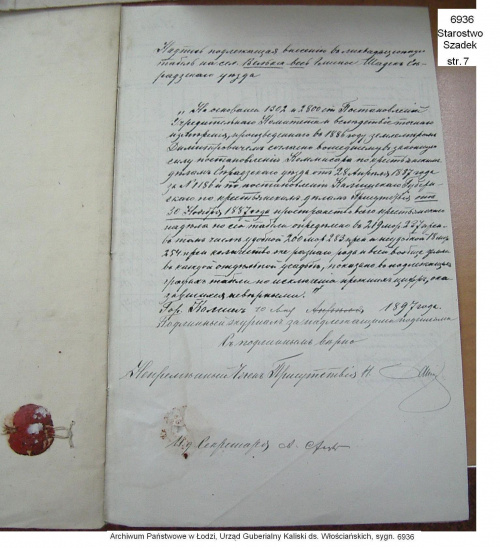 6936
Starostwo
Szadek
str. 7
Надпись подлежащая внесенію въ ликвидаціонную
табель на сел. Велька весь имѣнія Шадекъ Се-
радзскаго уѣзда
„На основаніи 1502 и 2800 ст. Постановленій
Учредительнаго Комитета и вслѣдствіе точнаго
измѣренія, произведеннаго въ 1886 году землемѣромъ
согласно вошедшему въ законную
силу постановленію Коммисара по крестьянскимъ
дѣламъ Серадзскаго уѣзда отъ 28 Апрѣля 1887 года
за № 186 и по постановленію Калишскаго Губерн-
скаго по крестьянскимъ дѣламъ Присутствія отъ
30 Ноября 1887 года пространство всего крестьянскаго
надѣла по сей табели опредѣлено въ 219 мор. 237 прен.
въ томъ числѣ удобной 200 мор. 283 прен. и неудобной 18 мор.
254 прен. количество же разнаго рода и всей вообще земли
въ каждой отдѣльной усадьбѣ, показано въ надлежащихъ
графахъ табели по исключеніи прежнихъ цифръ, ока-
завшихся невѣрными."
Гор. Калишъ 10 Мая 1897 года.
Подлинный журналъ за надлежащимъ подписомъ
Съ подлиннымъ вѣрно
Непремѣнный Членъ Присутствія Н.
И. д. Секретаря А.
Archiwum Państwowe w Łodzi, Urząd Guberialny Kaliski ds. Włościańskich, sygn. 6936